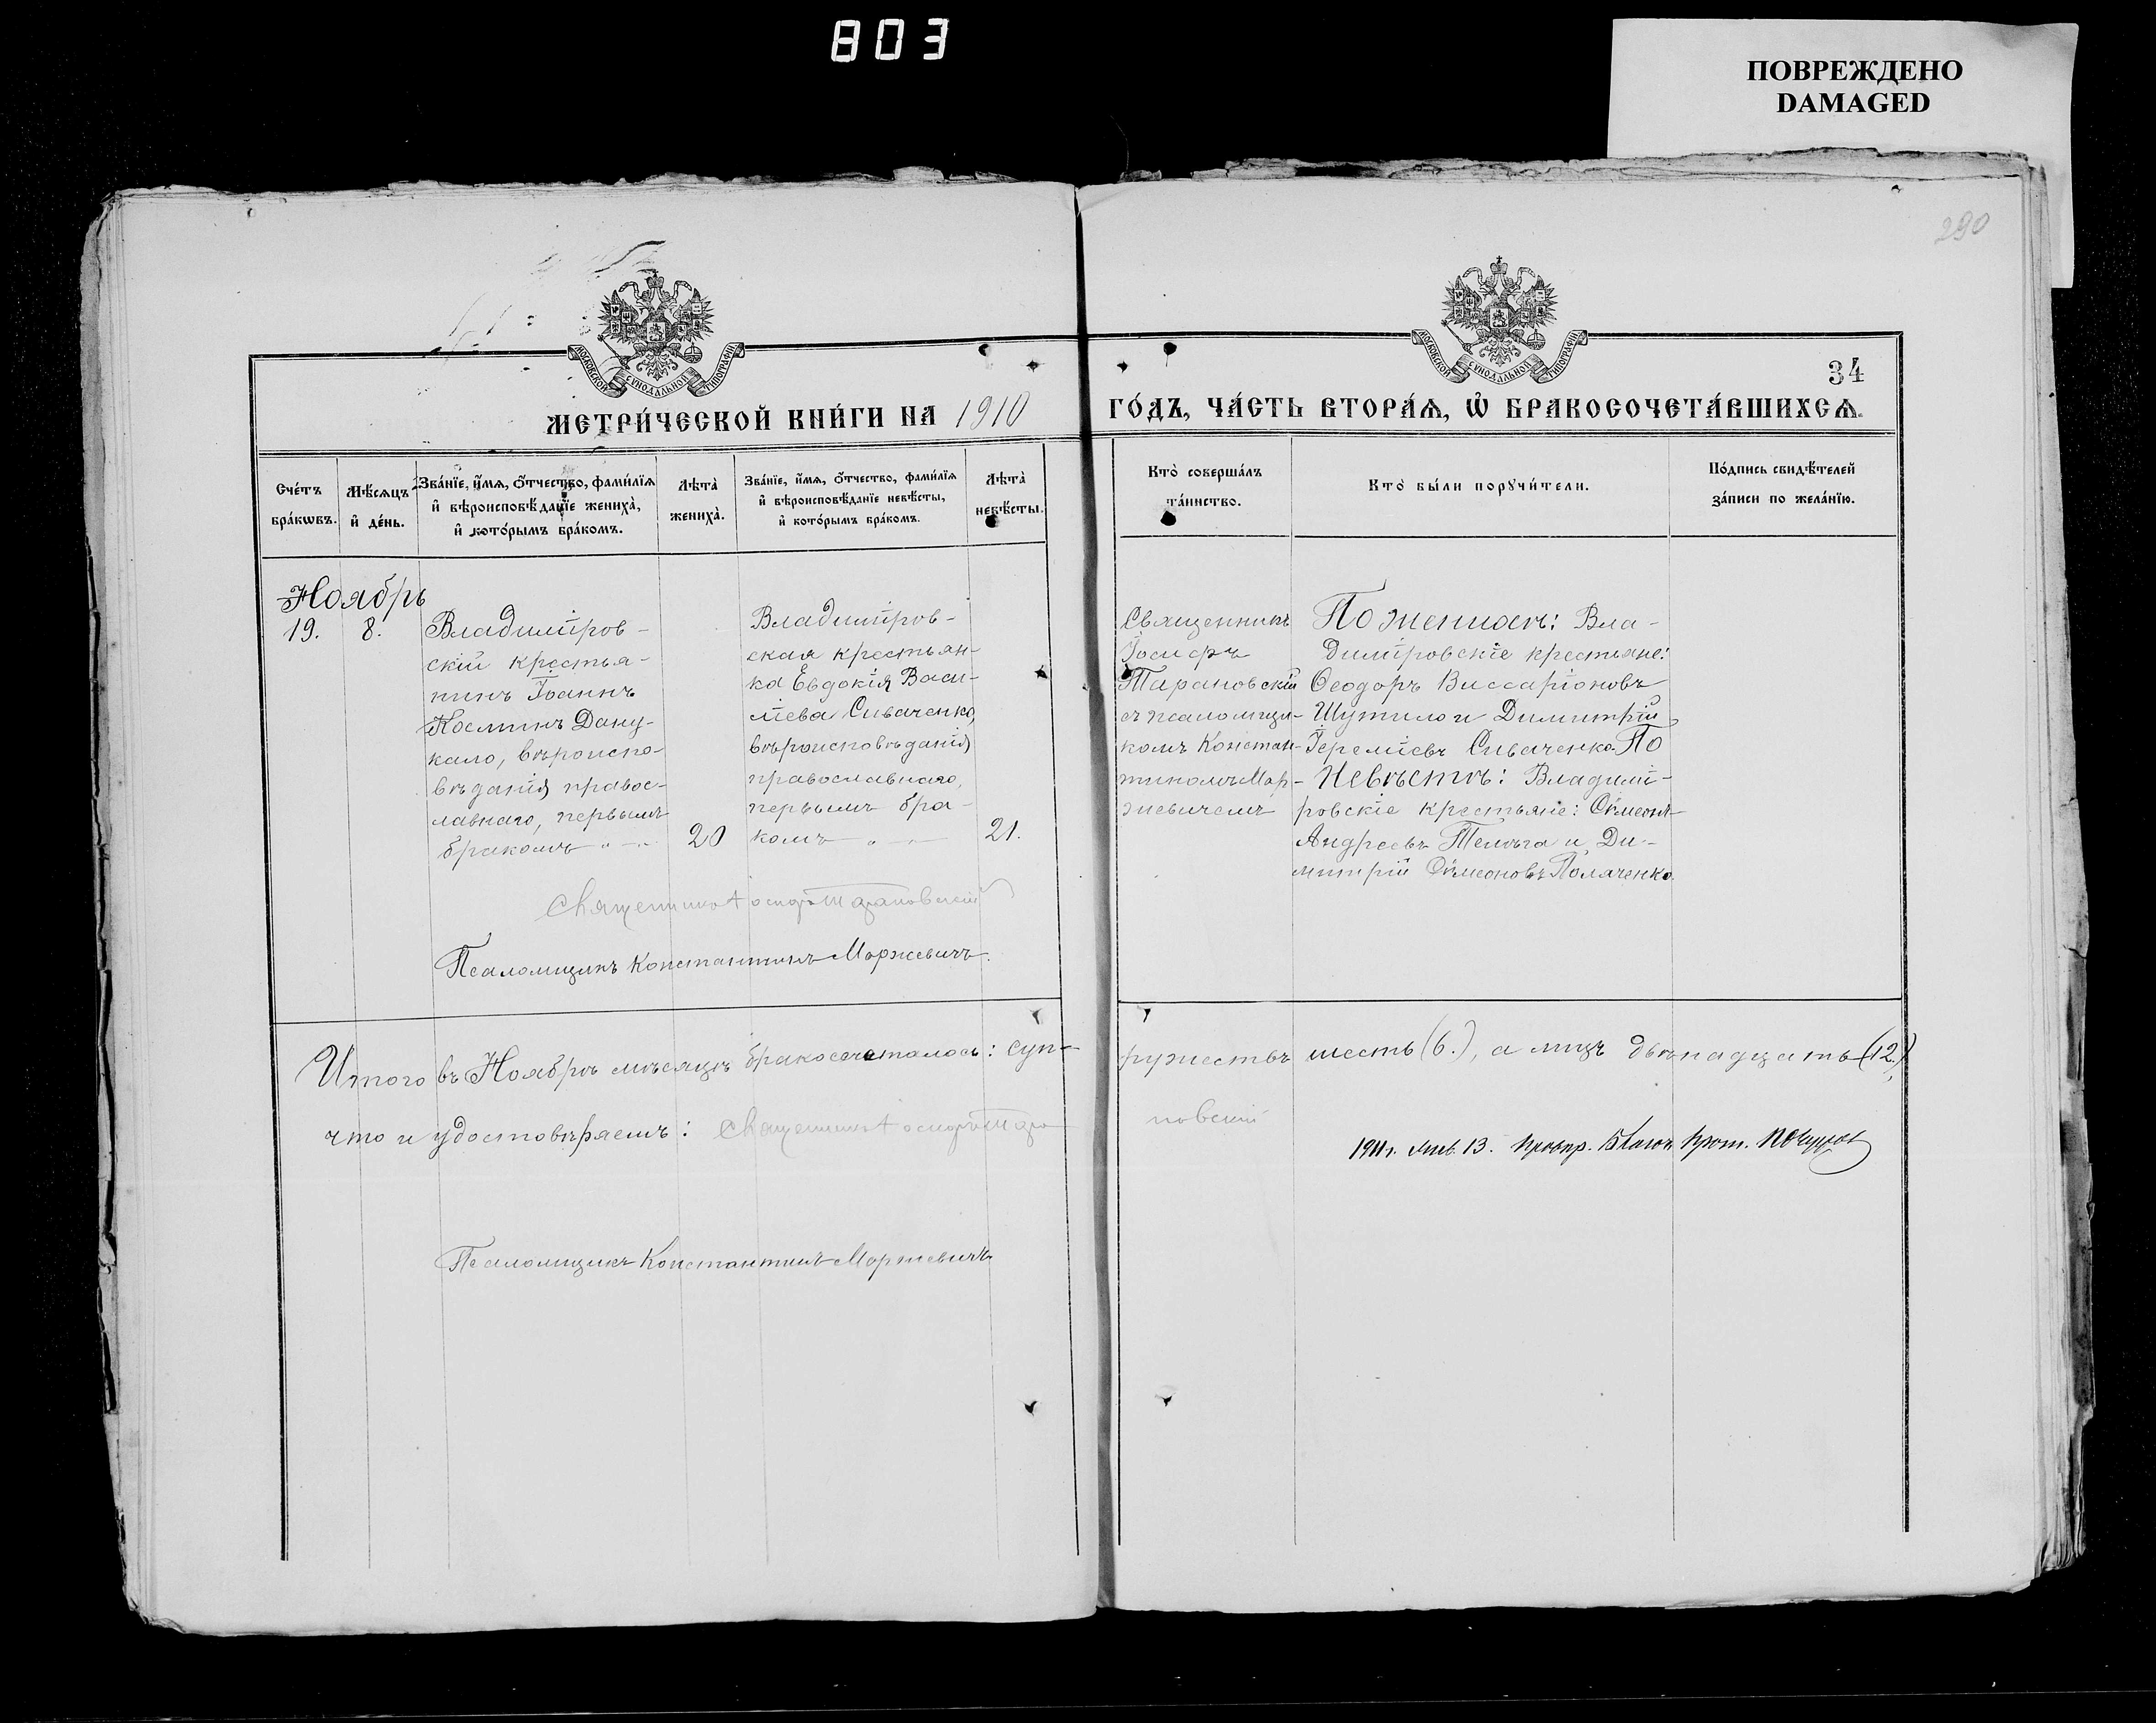 803
ПОВРЕЖДЕНО
DAMAGED
290
МОСКОВСКОЙ СѴНОДАЛЬНОЙ ТИПОГРАФІИ
МОСКОВСКОЙ СѴНОДАЛЬНОЙ ТИПОГРАФІИ
34
МЕТРИ́ЧЕСКОЙ КНИ́ГИ НА 1910
ГО́ДЪ, ЧА́СТЬ ВТОРА́Я, Ѡ҆ БРАКОСОЧЕТА́ВШИХСЯ.
Сче́тъ
бра́кѡвъ.
Мѣ́сяцъ
и҆ де́нь.
Зва́нїе, и҆́мя, о҆́тчество, фами́лїя
и҆ вѣроисповѣ́данїе жениха̀,
и҆ кото́рымъ бра́комъ.
Лѣта̀
жениха̀.
Зва́нїе, и҆́мя, о҆́тчество, фами́лїя
и҆ вѣроисповѣ́данїе невѣ́сты,
и҆ кото́рымъ бра́комъ.
Лѣта̀
невѣ́сты.
Кто̀ соверша́лъ
та́инство.
Кто̀ бы́ли порꙋчи́тели.
По́дпись свидѣ́телей
за́писи по жела́нїю.
Ноябрь
19.
8.
Владимїров-
скїй крестья-
нинъ Іоаннъ
Косминъ Дану-
кало, вѣроиспо-
вѣданія правос-
лавнаго, первымъ
бракомъ
20
Владимїров-
ская крестьян-
ка Евдокія Васи-
ліева Сиваченко,
вѣроисповѣданія
православнаго,
первымъ бра-
комъ
21.
Священникъ
Іосифъ
Тарановскій
съ псаломщи-
комъ Констан-
тиномъ Мар-
жевичемъ
По женихѣ: Вла-
димїровскіе крестьяне:
Ѳеодоръ Виссаріоновъ
Шутило и Димитрїй
Іереміевъ Сиваченко. По
Невѣстѣ: Владимї-
ровскіе крестьяне: Сѵмеонъ
Андреевъ Телѣга и Ди-
митрїй Сѵмеоновъ Полаченко.
Священникъ Іосифъ Тарановскій
Псаломщикъ Константинъ Маржевичъ.
Итого въ Ноябрѣ мѣсяцѣ бракосочеталось: суп-
ружествъ шесть (6.), а лицъ двѣнадцать (12.)
что и удостовѣряемъ: Священникъ Іосифъ Тара
новскій
1911 г. Янв. 13. Провѣр. Благоч. Прот.
Псаломщикъ Константинъ Маржевичъ